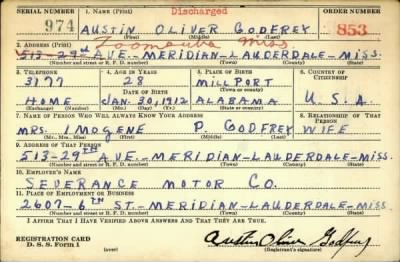 SERIAL NUMBER 1. NAME (Print) Discharged ORDER NUMBER
974 AUSTIN OLIVER GODFREY 853
(First) (Middle) (Last)
2. ADDRESS (Print) Toomsuba Miss
513-29th AVE. MERIDIAN-LAUDERDALE-MISS.
(Number and street or R. F. D. number) (Town) (County) (State)
3. TELEPHONE 4. AGE IN YEARS 5. PLACE OF BIRTH 6. COUNTRY OF CITIZENSHIP
3177 28 MILLPORT
DATE OF BIRTH (Town or county)
HOME JAN. 30, 1912 ALABAMA U.S.A.
(Exchange) (Number) (Mo.) (Day) (Yr.) (State or country)
7. NAME OF PERSON WHO WILL ALWAYS KNOW YOUR ADDRESS 8. RELATIONSHIP OF THAT PERSON
MRS. IMOGENE P. GODFREY WIFE
(Mr., Mrs., Miss) (First) (Middle) (Last)
9. ADDRESS OF THAT PERSON
513-29TH AVE. MERIDIAN-LAUDERDALE-MISS.
(Number and street or R. F. D. number) (Town) (County) (State)
10. EMPLOYER'S NAME
SEVERANCE MOTOR CO.
11. PLACE OF EMPLOYMENT OR BUSINESS
2607-6TH ST-MERIDIAN-LAUDERDALE-MISS
(Number and street or R. F. D. number) (Town) (County) (State)
I AFFIRM THAT I HAVE VERIFIED ABOVE ANSWERS AND THAT THEY ARE TRUE.
REGISTRATION CARD
D. S. S. Form 1 (over) Austin Oliver Godfrey
(Registrant's signature)